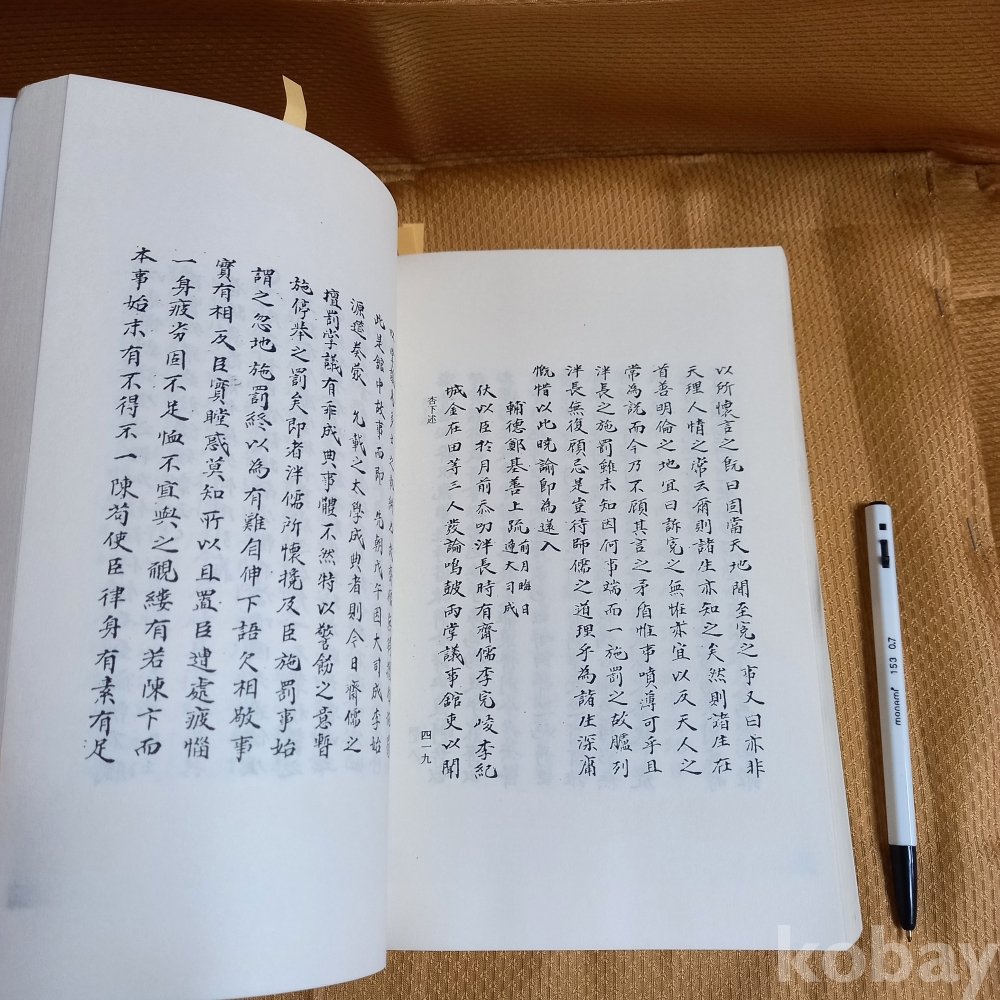 以所懷言之旣曰固當天地間至寃之事又曰亦非
天理人情之常云爾則諸生亦知之矣然則諸生在
首善明倫之地宜曰訴寃之無惟亦宜以反天人之
常為說而今乃不顧其言之矛盾惟事噴薄可乎且
泮長之施罰雖未知因何事端而一施罰之故臚列
泮長無復顧忌是豈待師儒之道理乎為諸生深庸
慨惜以此曉諭卽為送入
輔德鄭基善上疏 前月晦日遞大司成
伏以臣於月前忝叨泮長時有齋儒李完峻李紀
城金在田等三人發論鳴鼓兩掌議事館吏以聞
杏下述
四一九
此是館中故事而即 先朝戊午因大司成李始
源遣奏蒙 允載之太學成典者則今日齋儒之
擅罰掌議有乖成典事軆不然特以警飭之意暫
施停擧之罰矣即者泮儒所懷挽及臣施罰事始
謂之忽地施罰終以為有難自伸下語欠相敬事
實有相反臣實瞠惑莫知所以且置臣遞處疲惱
一身疲劣固不足恤不宜與之覶縷有若陳卞而
本事始末有不得不一陳苟使臣律身有素有足
monami 153 0.7
kobay